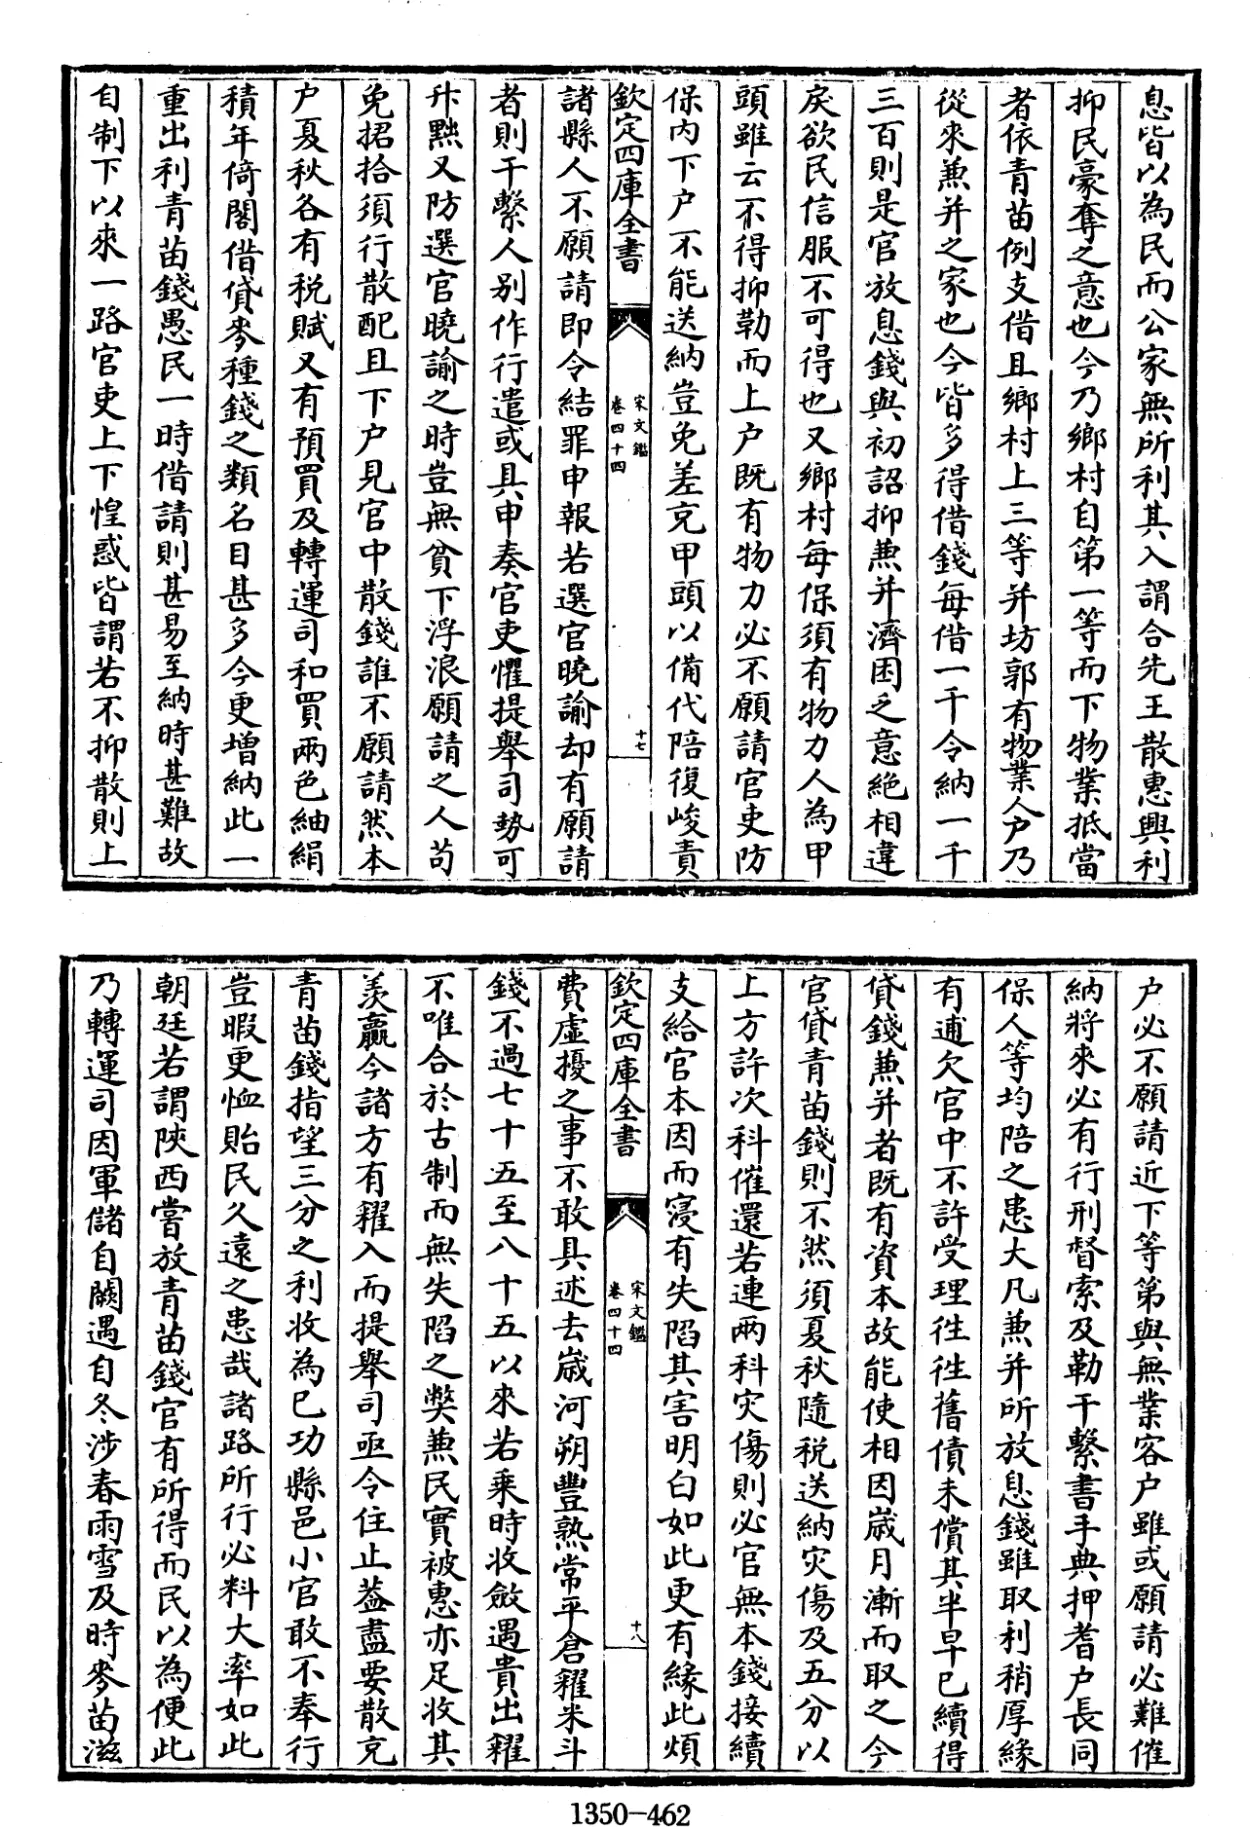 息皆以為民而公家無所利其入謂合先王散惠興利
抑民豪奪之意也今乃鄉村自第一等而下物業抵當
者依青苗例支借且鄉村上三等并坊郭有物業人户乃
從來兼并之家也今皆多得借錢每借一千令納一千
三百則是官放息錢與初詔抑兼并濟困乏意絶相違
戾欲民信服不可得也又鄉村每保須有物力人為甲
頭雖云不得抑勒而上户既有物力必不願請官吏防
保内下户不能送納豈免差充甲頭以備代陪復峻責
欽定四庫全書
宋文鑑
卷四十四
十七
諸縣人不願請即令結罪申報若選官曉諭却有願請
者則干繫人别作行遣或具申奏官吏懼提舉司勢可
升黜又防選官曉諭之時豈無貧下浮浪願請之人苟
免捃拾須行散配且下户見官中散錢誰不願請然本
户夏秋各有税賦又有預買及轉運司和買兩色紬絹
積年倚閣借貸麥種錢之類名目甚多今更增納此一
重出利青苗錢愚民一時借請則甚易至納時甚難故
自制下以來一路官吏上下惶惑皆謂若不抑散則上
户必不願請近下等第與無業客户雖或願請必難催
納將來必有行刑督索及勒干繫書手典押耆户長同
保人等均陪之患大凡兼并所放息錢雖取利稍厚緣
有逋欠官中不許受理往往舊債未償其半早已續得
貸錢兼并者既有資本故能使相因歲月漸而取之今
官貸青苗錢則不然須夏秋隨税送納灾傷及五分以
上方許次科催還若連兩科灾傷則必官無本錢接續
支給官本因而寖有失陷其害明白如此更有緣此煩
欽定四庫全書
宋文鑑
卷四十四
十八
費虛擾之事不敢具述去歲河朔豐熟常平倉糴米斗
錢不過七十五至八十五以來若乘時收斂遇貴出糶
不唯合於古制而無失陷之弊兼民實被惠亦足收其
羨贏今諸方有糴入而提舉司亟令住止葢盡要散充
青苗錢指望三分之利收為已功縣邑小官敢不奉行
豈暇更恤貽民久遠之患哉諸路所行必料大率如此
朝廷若謂陜西嘗放青苗錢官有所得而民以為便此
乃轉運司因軍儲自闕遇自冬涉春雨雪及時麥苗滋
1350-462